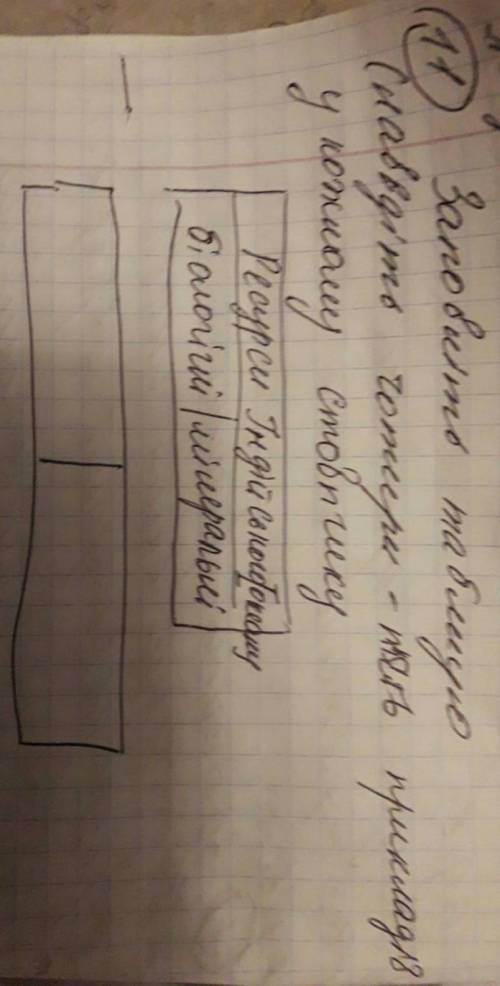 11
Заповніть таблицю
(наведіть чотири - п'ять прикладів
у кожному стовпчику
Ресурси Індійського океану
біологічні мінеральні